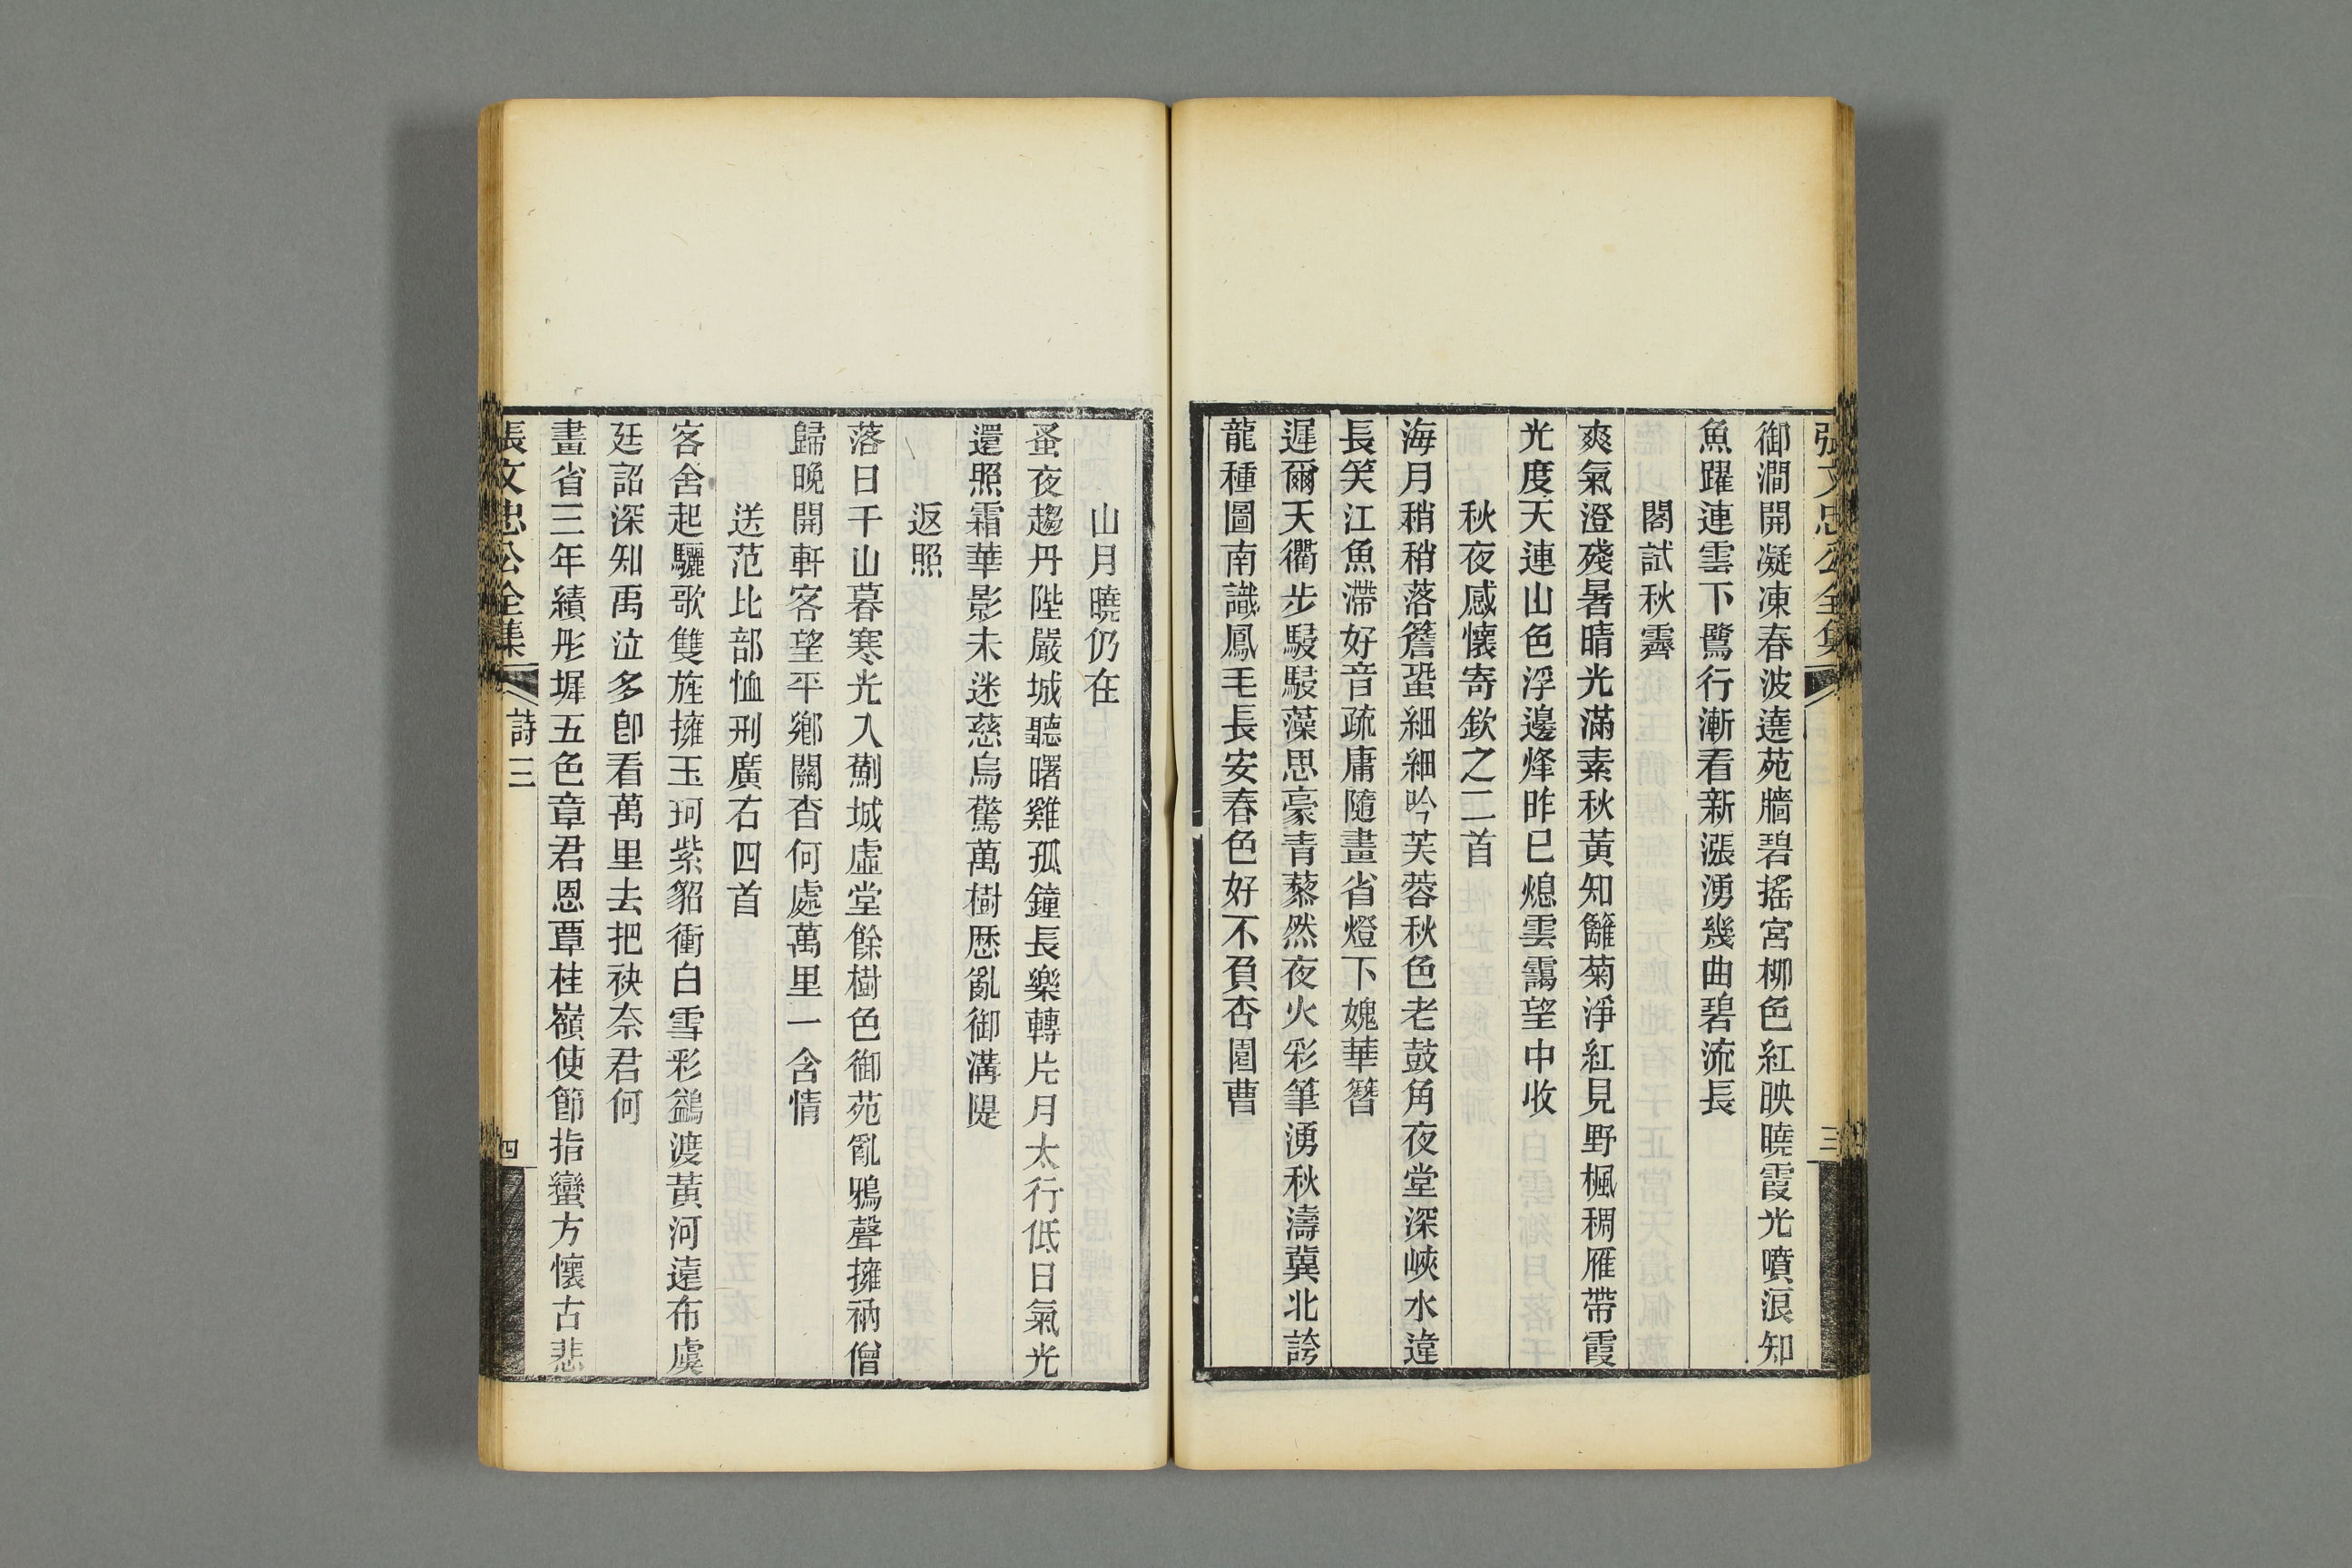 張文忠公全集
三
御澗開凝凍春波遶苑牆碧搖宮柳色紅映曉霞光噴浪知
魚躍連雲下鷺行漸看新漲湧幾曲碧流長
閣試秋霽
爽氣澄殘暑晴光滿素秋黃知籬菊淨紅見野楓稠雁帶霞
光度天連山色浮邊烽昨已熄雲靄望中收
秋夜感懷寄欽之二首
海月稍稍落簷蛩細細吟芙蓉秋色老鼓角夜堂深峽水違
長笑江魚滯好音疏庸隨畫省燈下媿華簪
遲爾天衢步駸駸藻思豪青藜然夜火彩筆湧秋濤冀北誇
龍種圖南識鳳毛長安春色好不負杏園曹
山月曉仍在
蚤夜趨丹陛嚴城聽曙雞孤鐘長樂轉片月太行低日氣光
還照霜華影未迷慈烏驚萬樹歷亂御溝隄
返照
落日千山暮寒光入薊城虛堂餘樹色御苑亂鴉聲擁衲僧
歸晚開軒客望平鄉關杳何處萬里一含情
送范比部恤刑廣右四首
客舍起驪歌雙旌擁玉珂紫貂衝白雪彩鷁渡黃河遠布虞
廷詔深知禹泣多卽看萬里去把袂奈君何
畫省三年績彤墀五色章君恩覃桂嶺使節指蠻方懷古悲
張文忠公全集
詩三
四